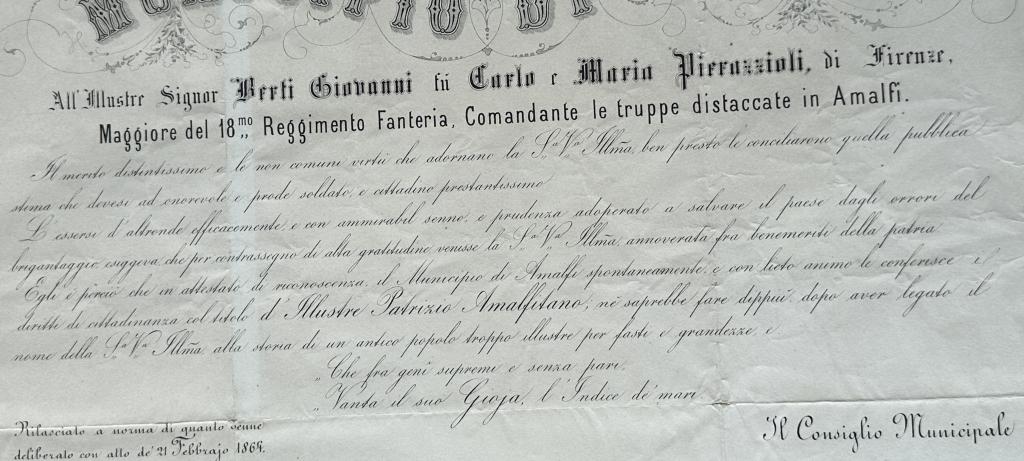 MUNICIPIO DI
All'Illustre Signor Berti Giovanni fú Carlo e Maria Pierazzioli, di Firenze,
Maggiore del 18.mo Reggimento Fanteria, Comandante le truppe distaccate in Amalfi.
Il merito distintissimo e le non comuni virtú che adornano la S.a V.a Illm̃a, ben presto le conciliarono quella pubblica
stima che devesi ad onorevole e prode soldato, e cittadino prestantissimo
L'essersi d'altronde efficacemente, e con ammirabil senno, e prudenza adoperato a salvare il paese dagli orrori del
brigantaggio, esiggeva, che per contrassegno di alta gratitudine venisse la S.a V.a Illm̃a, annoverata fra benemeriti della patria
Egli é perciò che in attestato di riconoscenza, il Municipio di Amalfi spontaneamente, e con lieto animo le conferisce i
diritti di cittadinanza col titolo d'Illustre Patrizio Amalfitano, né saprebbe fare dippiú, dopo aver legato il
nome della S.a V.a Illm̃a, alla storia di un antico popolo troppo illustre per fasti e grandezze, e
„Che fra geni supremi e senza pari,
„Vanta il suo Gioja, l'Indice de' mari.
Rilasciato a norma di quanto venne
deliberato con atto de' 21 Febbrajo 1864.
Il Consiglio Municipale